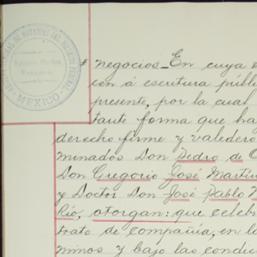 negocios_En cuya
con á escritura públi
presente, por la cual
tante forma que ha
derecho firme y valedero
minados Don Pedro de
Don Gregorio José Martín
y Doctor Don José Pablo
Rio, otorgan: que celeb
trato de compañía, en l
minos y bajo las condi
MEXICO